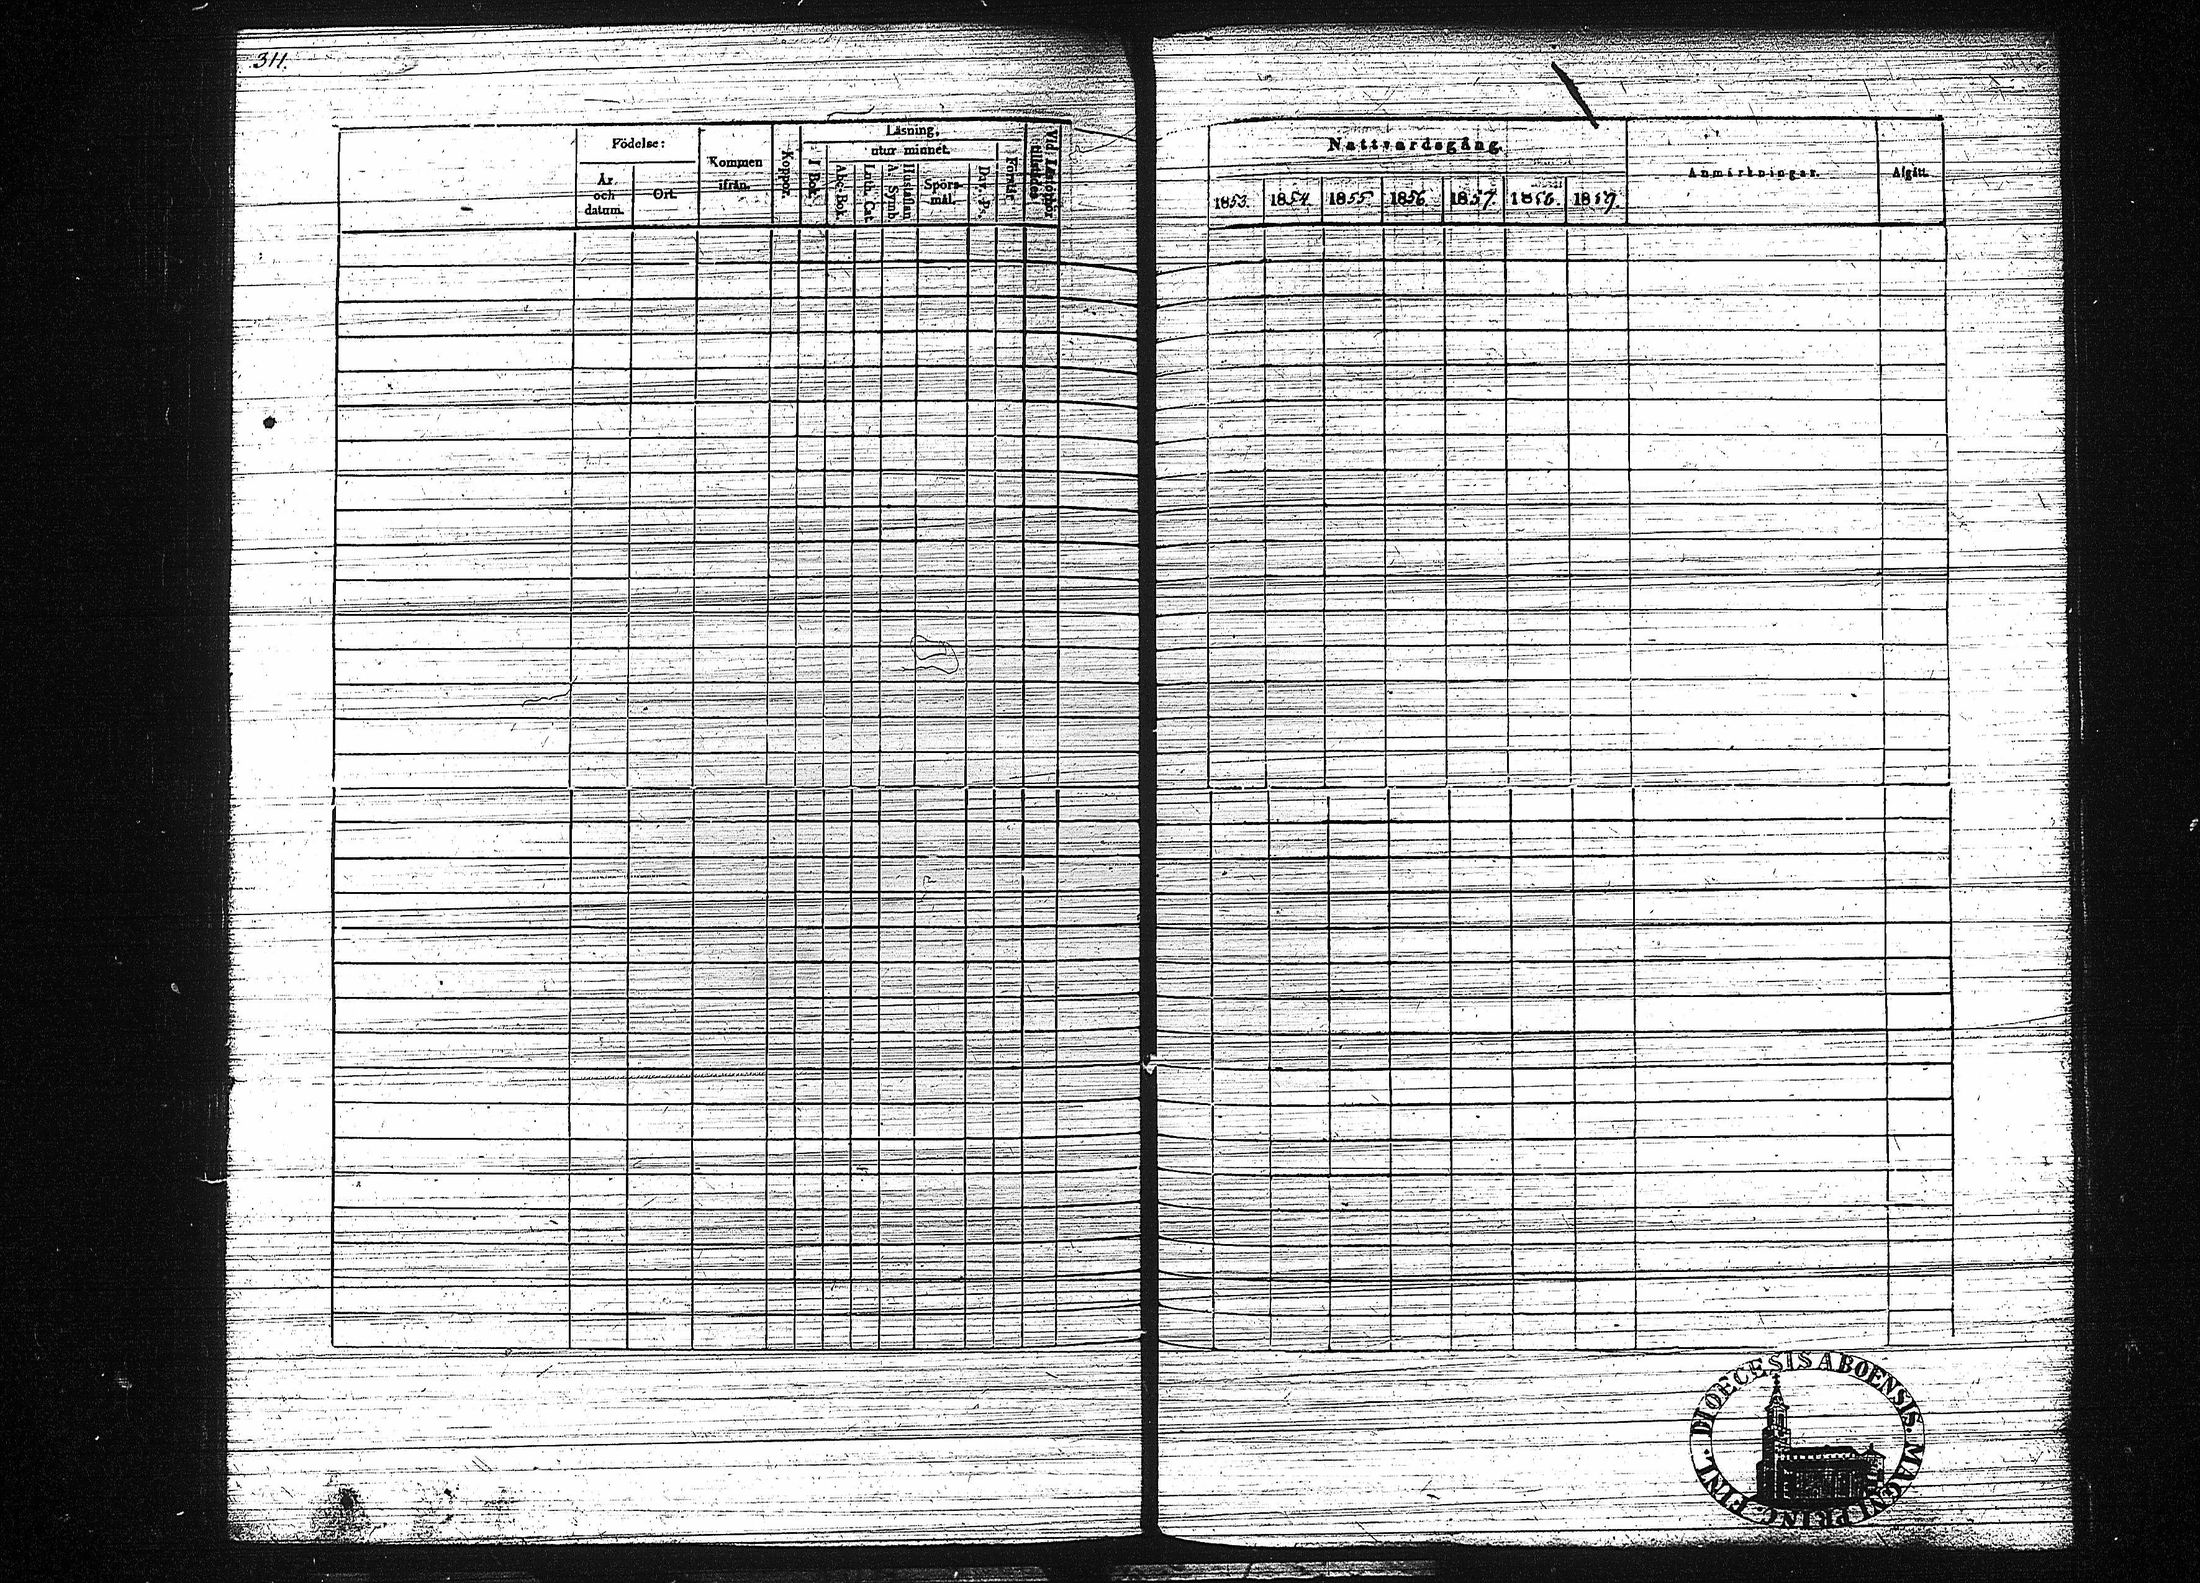 311.
Födelse:
År och datum.
Ort.
Kommen ifrån.
Koppor.
Läsning,
utur minnet.
I Bok.
Abc-Bok.
Luth. Cat.
Hustaflan
A. Symb.
Spörs-
mål.
Dav. Ps.
Förstår
Vid Läsförhör
Nattvardsgång.
1853.
1854.
1855
1856
1857.
1858.
1859.
Anmärkningar.
Afgått.
DIOECESIS ABOENSIS. MAGNI PRINC. FINL.